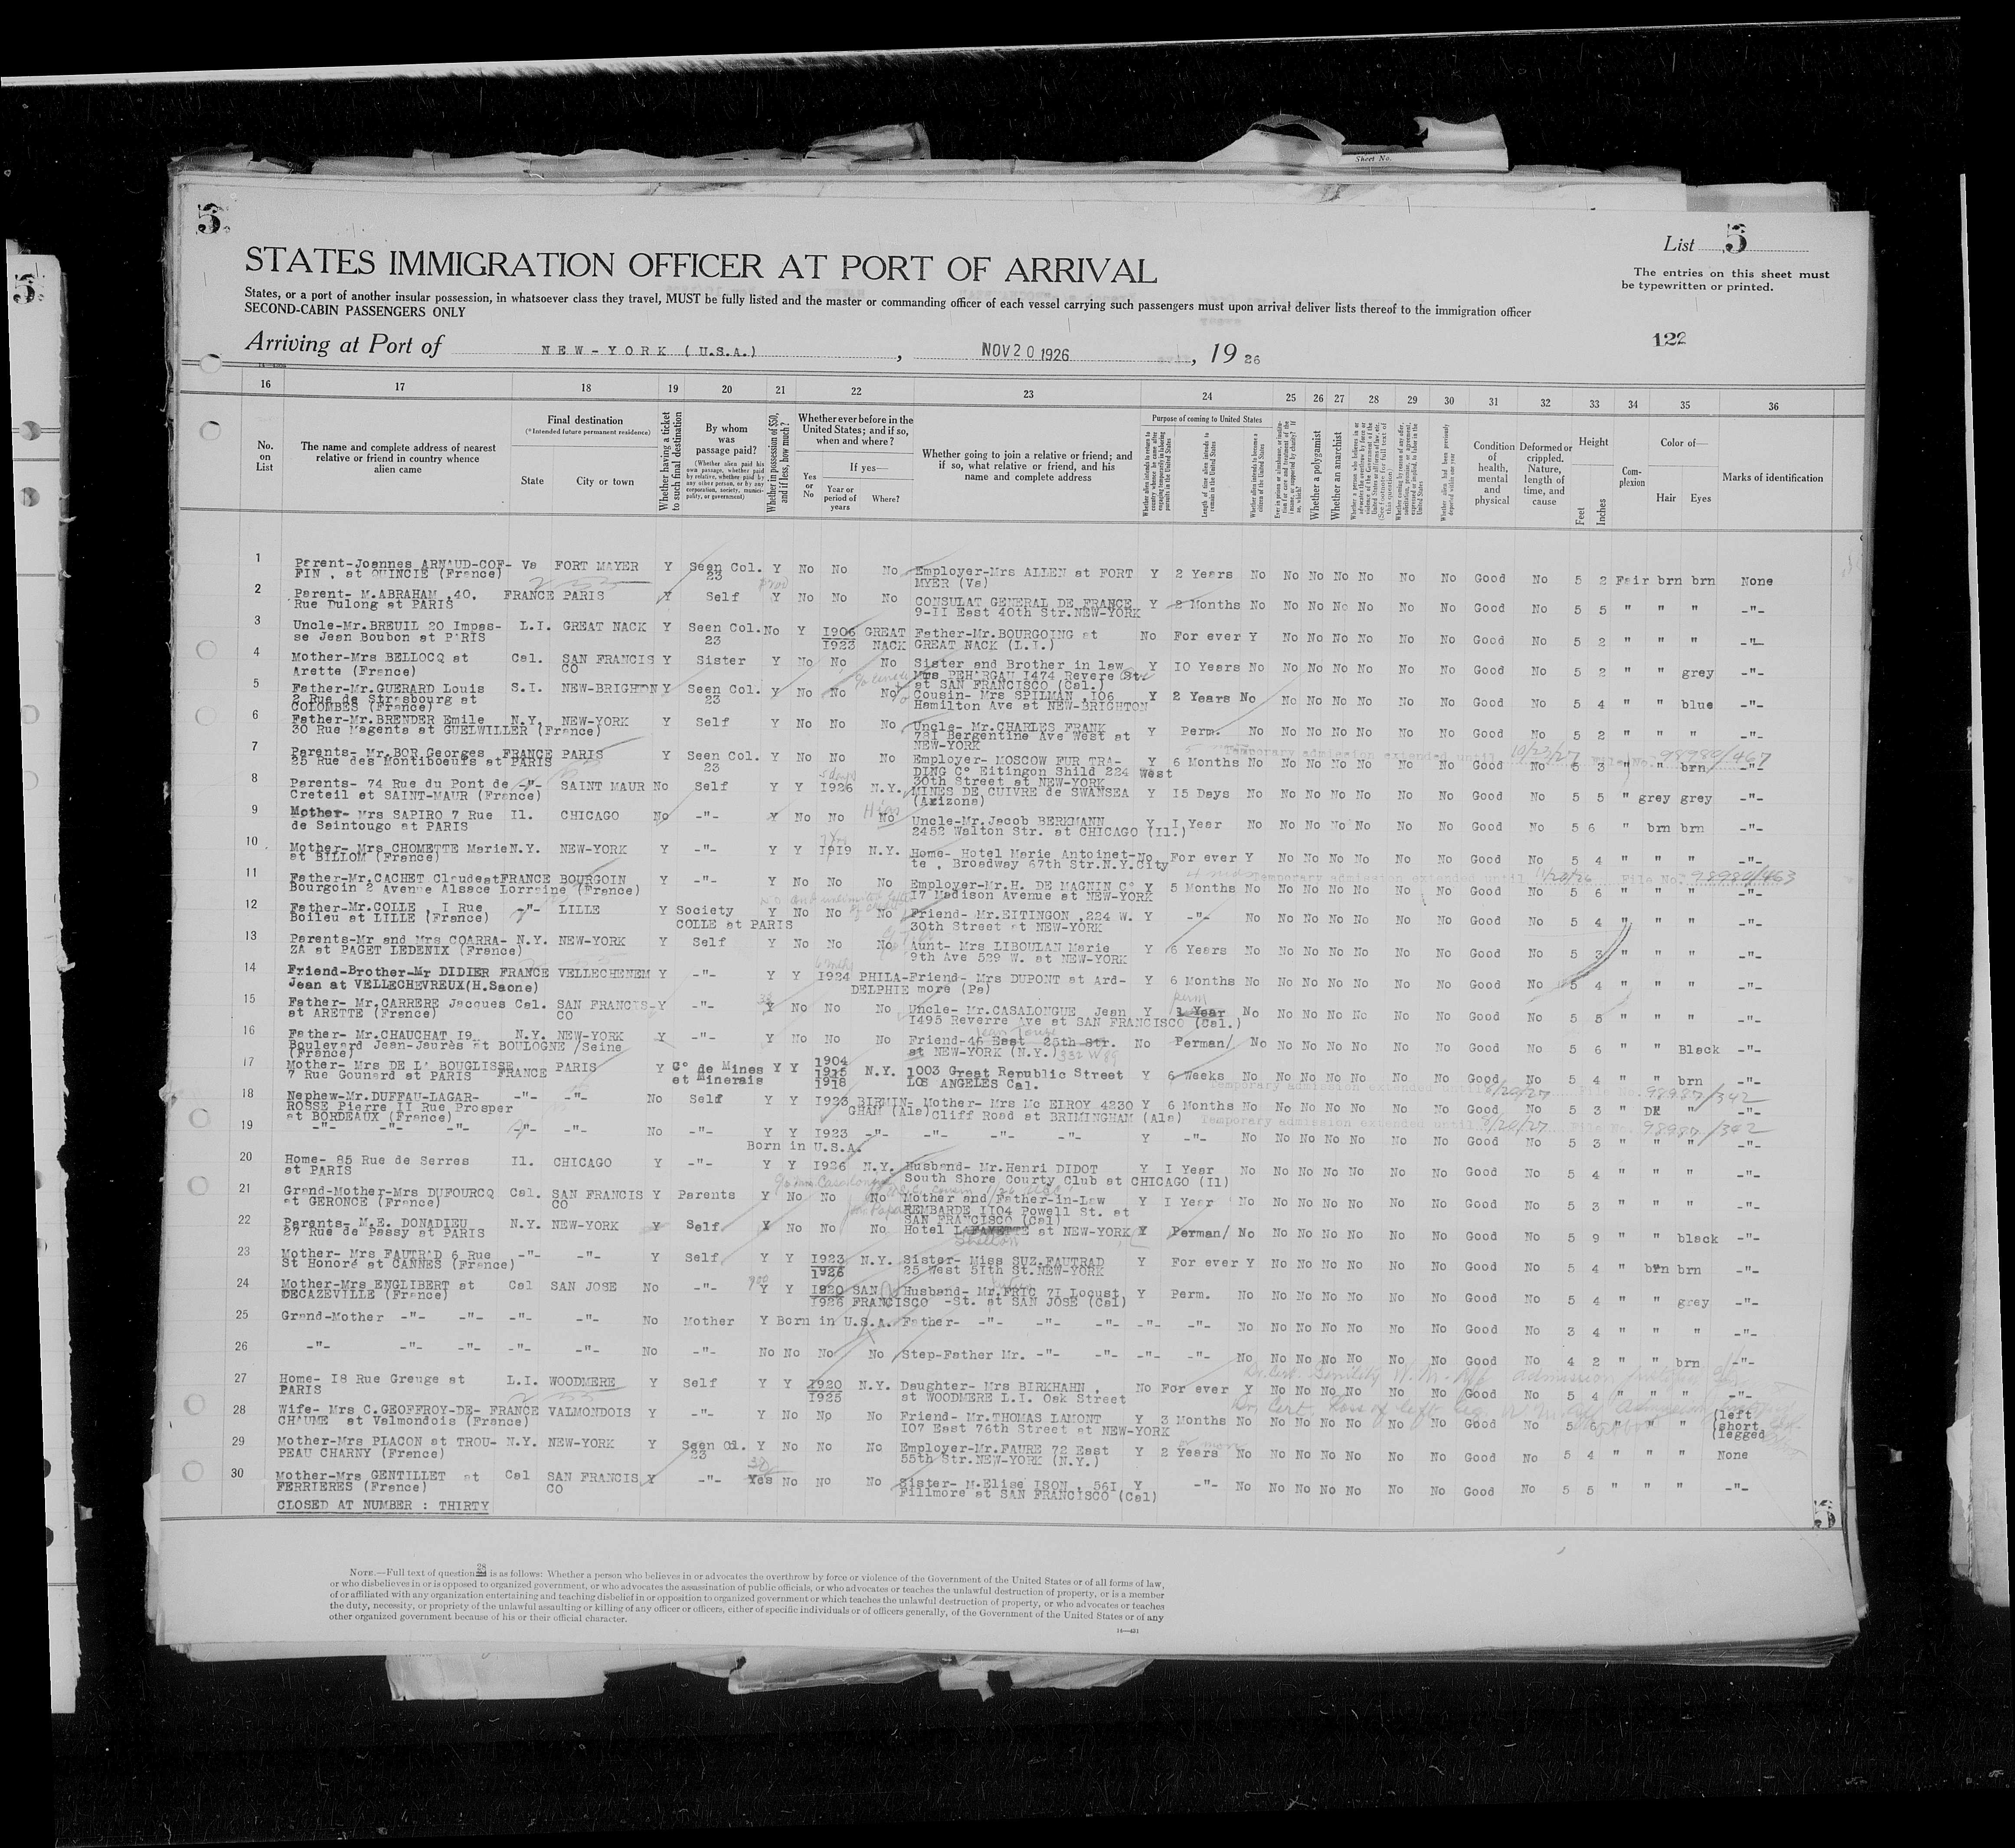 Sheet No.
5
List 5
STATES IMMIGRATION OFFICER AT PORT OF ARRIVAL
The entries on this sheet must
be typewritten or printed.
States, or a port of another insular possession, in whatsoever class they travel, MUST be fully listed and the master or commanding officer of each vessel carrying such passengers must upon arrival deliver lists thereof to the immigration officer
SECOND-CABIN PASSENGERS ONLY
122
Arriving at Port of NEW-YORK (U.S.A.), NOV 20 1926, 19 26
16 17 18 19 20 21 22 23 24 25 26 27 28 29 30 31 32 33 34 35 36
No. on List
The name and complete address of nearest relative or friend in country whence alien came
Final destination
(*Intended future permanent residence)
State City or town
Whether having a ticket to such final destination
By whom was passage paid?
(Whether alien paid his own passage, whether paid by relative, whether paid by any other person, or by any corporation, society, municipality, or government)
Whether in possession of $50, and if less, how much?
Whether ever before in the United States; and if so, when and where?
Yes or No
If yes—
Year or period of years
Where?
Whether going to join a relative or friend; and if so, what relative or friend, and his name and complete address
Purpose of coming to United States
Length of time alien intends to remain in the United States
Whether alien intends to become a citizen of the United States
Whether a polygamist
Whether an anarchist
Condition of health, mental and physical
Deformed or crippled. Nature, length of time, and cause
Height
Feet Inches
Complexion
Color of—
Hair Eyes
Marks of identification
1 Parent-Joannes ARNAUD-COF- Va FORT MAYER Y Seen Col. Y No No No Employer-Mrs ALLEN at FORT Y 2 Years No No No No No No No Good No 5 2 Fair brn brn None
FIN , at QUINCIE (France) 23 MYER (Va)
2 Parent- M.ABRAHAM ,40, FRANCE PARIS Y Self Y No No No CONSULAT GENERAL DE FRANCE Y 2 Months No No No No No No No Good No 5 5 " " " -"-
Rue Dulong at PARIS 9-II East 40th Str.NEW-YORK
3 Uncle-Mr.BREUIL 20 Impas- L.I. GREAT NACK Y Seen Col. No Y 1906 GREAT Father-Mr.BOURGOING at No For ever Y No No No No No No Good No 5 2 " " " -"-
se Jean Boubon at PARIS 23 1923 NACK GREAT NACK (L.I.)
4 Mother-Mrs BELLOCQ at Cal. SAN FRANCIS Y Sister Y No No No Sister and Brother in law Y IO Years No No No No No No No Good No 5 2 " " grey -"-
Arette (France) CO Mrs PEHARGAU I474 Revere St.
at SAN FRANCISCO (Cal.)
5 Father-Mr.GUERARD Louis S.I. NEW-BRIGHTON Y Seen Col. Y No No No Cousin- Mrs SPILMAN ,IO6 Y 2 Years No No No No No No No Good No 5 4 " " blue -"-
2 Rue de Strasbourg at 23 Hamilton Ave at NEW-BRIGHTON
COLOMBES (France)
6 Father-Mr.BRENDER Emile N.Y. NEW-YORK Y Self Y No No No Uncle- Mr.CHARLES FRANK Y Perm. No No No No No No No Good No 5 2 " " " -"-
30 Rue Magenta at GUEWILLER (France) 781 Bergentine Ave West at
NEW-YORK
Temporary admission extended until 10/23/27 File No. 98980/467
7 Parents- Mr.BOR Georges FRANCE PARIS Y Seen Col. Y No No No Employer- MOSCOW FUR TRA- Y 6 Months No No No No No No No Good No 5 3 " " brn -"-
25 Rue des Montiboeufs at PARIS 23 DING C° Eitingon Shild 224 West
30th Street at NEW-YORK
8 Parents- 74 Rue du Pont de -"- SAINT MAUR No Self Y Y 1926 N.Y. MINES DE CUIVRE de SWANSEA Y I5 Days No No No No No No No Good No 5 5 " grey grey -"-
Creteil at SAINT-MAUR (France) (Arizona)
9 Mother- Mrs SAPIRO 7 Rue Il. CHICAGO No -"- Y No No No Uncle-Mr.Jacob BERKMANN Y I Year No No No No No No No Good No 5 6 " brn brn -"-
de Saintougo at PARIS 2452 Walton Str. at CHICAGO (Il.)
10 Mother- Mrs CHOMETTE Marie N.Y. NEW-YORK Y -"- Y Y 1919 N.Y. Home- Hotel Marie Antoinet- No For ever Y No No No No No No Good No 5 4 " " " -"-
at BILLOM (France) te , Broadway 67th Str.N.Y.City
Temporary admission extended until File No. 98980/463
11 Father-Mr.CACHET Claudeat FRANCE BOURGOIN Y -"- Y No No No Employer-Mr.H. DE MAGNIN C° Y 5 Months No No No No No No No Good No 5 6 " " " -"-
Bourgoin 2 Avenue Alsace Lorraine (France) I7 Madison Avenue at NEW-YORK
12 Father-Mr.COLLE I Rue -"- LILLE Y Society Y No No No Friend- Mr.EITINGON ,224 W. Y -"- No No No No No No No Good No 5 4 " " " -"-
Boileu at LILLE (France) COLLE at PARIS 30th Street at NEW-YORK
13 Parents-Mr and Mrs COARRA- N.Y. NEW-YORK Y Self Y No No No Aunt- Mrs LIBOULAN Marie Y 6 Years No No No No No No No Good No 5 3 " " " -"-
ZA at PAGET LEDENIX (France) 9th Ave 529 W. at NEW-YORK
14 Friend-Brother-Mr DIDIER FRANCE VELLECHENEM Y -"- Y Y 1924 PHILA- Friend- Mrs DUPONT at Ard- Y 6 Months No No No No No No No Good No 5 4 " " " -"-
Jean at VELLECHEVREUX(H.Saone) DELPHIE more (Pa)
15 Father- Mr.CARRERE Jacques Cal. SAN FRANCIS- Y -"- Y No No No Uncle- Mr.CASALONGUE Jean Y 1 Year No No No No No No No Good No 5 5 " " " -"-
at ARETTE (France) CO perm I495 Reverre Ave at SAN FRANCISCO (Cal.)
16 Father- Mr.CHAUCHAT I9 N.Y. NEW-YORK Y -"- Y No No No Friend-46 East 25th Str. No Perman/ No No No No No No No Good No 5 6 " " Black -"-
Boulevard Jean-Jaurès at BOULOGNE /Seine at NEW-YORK (N.Y.)
(France)
17 Mother- Mrs DE L' BOUGLISSE FRANCE PARIS Y C° de Mines Y Y 1904 1915 1918 N.Y. 1003 Great Republic Street Y 6 Weeks No No No No No No No Good No 5 4 " " brn -"-
7 Rue Gounard at PARIS et Minerais LOS ANGELES Cal.
Temporary admission extended until /20/27 File No. 98987/342
18 Nephew-Mr.DUFFAU-LAGAR- -"- -"- No Self Y Y 1923 BIRMIN- Mother- Mrs Mc ELROY 4230 Y 6 Months No No No No No No No Good No 5 3 " DK " -"-
ROSSE Pierre II Rue Prosper GHAM (Ala) Cliff Road at BRIMINGHAM (Ala)
at BORDEAUX (France)
Temporary admission extended until /20/27 File No. 98987/342
19 -"- -"- -"- -"- -"- No -"- Y Y 1923 -"- -"- -"- -"- Y -"- No No No No No No No Good No 5 3 " " " -"-
Born in U.S.A.
20 Home- 85 Rue de Serres Il. CHICAGO Y -"- Y Y 1926 N.Y. Husband- Mr.Henri DIDOT Y I Year No No No No No No No Good No 5 4 " " " -"-
at PARIS South Shore Courty Club at CHICAGO (Il)
21 Grand-Mother-Mrs DUFOURCQ Cal. SAN FRANCIS Y Parents Y No No No Mother and Father-in-Law Y I Year No No No No No No No Good No 5 3 " " " -"-
at GERONCE (France) CO REMBARDE II04 Powell St. at
SAN FRANCISCO (Cal)
22 Parents- M.E. DONADIEU N.Y. NEW-YORK Y Self Y No No No Hotel LAFAYETTE at NEW-YORK Y Perman/ No No No No No No No Good No 5 9 " " black -"-
27 Rue de Passy at PARIS
23 Mother- Mrs FAUTRAD 6 Rue -"- -"- Y Self Y Y 1923 N.Y. Sister- Miss SUZ.FAUTRAD Y For ever Y No No No No No No Good No 5 4 " brn brn -"-
St Honoré at CANNES (France) 1926 25 West 5Ith St.NEW-YORK
24 Mother-Mrs ENGLIBERT at Cal SAN JOSE No -"- Y Y 1920 SAN Husband- Mr.FRIC 7I Locust Y Perm. No No No No No No No Good No 5 4 " " grey -"-
DECAZEVILLE (France) 1926 FRANCISCO -St. at SAN JOSE (Cal)
25 Grand-Mother -"- -"- -"- -"- No Mother Y Born in U.S.A. Father- -"- -"- -"- -"- -"- No No No No No No No Good No 3 4 " " " -"-
26 -"- -"- -"- -"- -"- No -"- No No No No Step-Father Mr. -"- -"- -"- -"- No No No No No No No Good No 4 2 " " brn -"-
27 Home- I8 Rue Greuge at L.I. WOODMERE Y Self Y Y 1920 N.Y. Daughter- Mrs BIRKHAHN , No For ever Y No No No No No No Good No 5 4 " " " -"-
PARIS 1925 at WOODMERE L.I. Oak Street
28 Wife- Mrs C.GEOFFROY-DE- FRANCE VALMONDOIS Y -"- Y No No No Friend- Mr.THOMAS LAMONT Y 3 Months No No No No No No No Good No 5 6 " " " (left
CHAUME at Valmondois (France) IO7 East 76th Street at NEW-YORK (short
(legged
29 Mother-Mrs PLACON at TROU- N.Y. NEW-YORK Y Seen Ol. Y No No No Employer-Mr.FAURE 72 East Y 2 Years No No No No No No No Good No 5 4 " " " None
PEAU CHARNY (France) 23 55th Str.NEW-YORK (N.Y.)
30 Mother-Mrs GENTILLET at Cal SAN FRANCIS Y -"- Yes No No No Sister- M.Elise ISON , 56I Y -"- No No No No No No No Good No 5 5 " " " -"-
FERRIERES (France) CO Fillmore at SAN FRANCISCO (Cal)
CLOSED AT NUMBER : THIRTY
5
NOTE.—Full text of question 28 is as follows: Whether a person who believes in or advocates the overthrow by force or violence of the Government of the United States or of all forms of law,
or who disbelieves in or is opposed to organized government, or who advocates the assassination of public officials, or who advocates or teaches the unlawful destruction of property, or is a member
of or affiliated with any organization entertaining and teaching disbelief in or opposition to organized government or which teaches the unlawful destruction of property, or who advocates or teaches
the duty, necessity, or propriety of the unlawful assaulting or killing of any officer or officers, either of specific individuals or of officers generally, of the Government of the United States or of any
other organized government because of his or their official character.